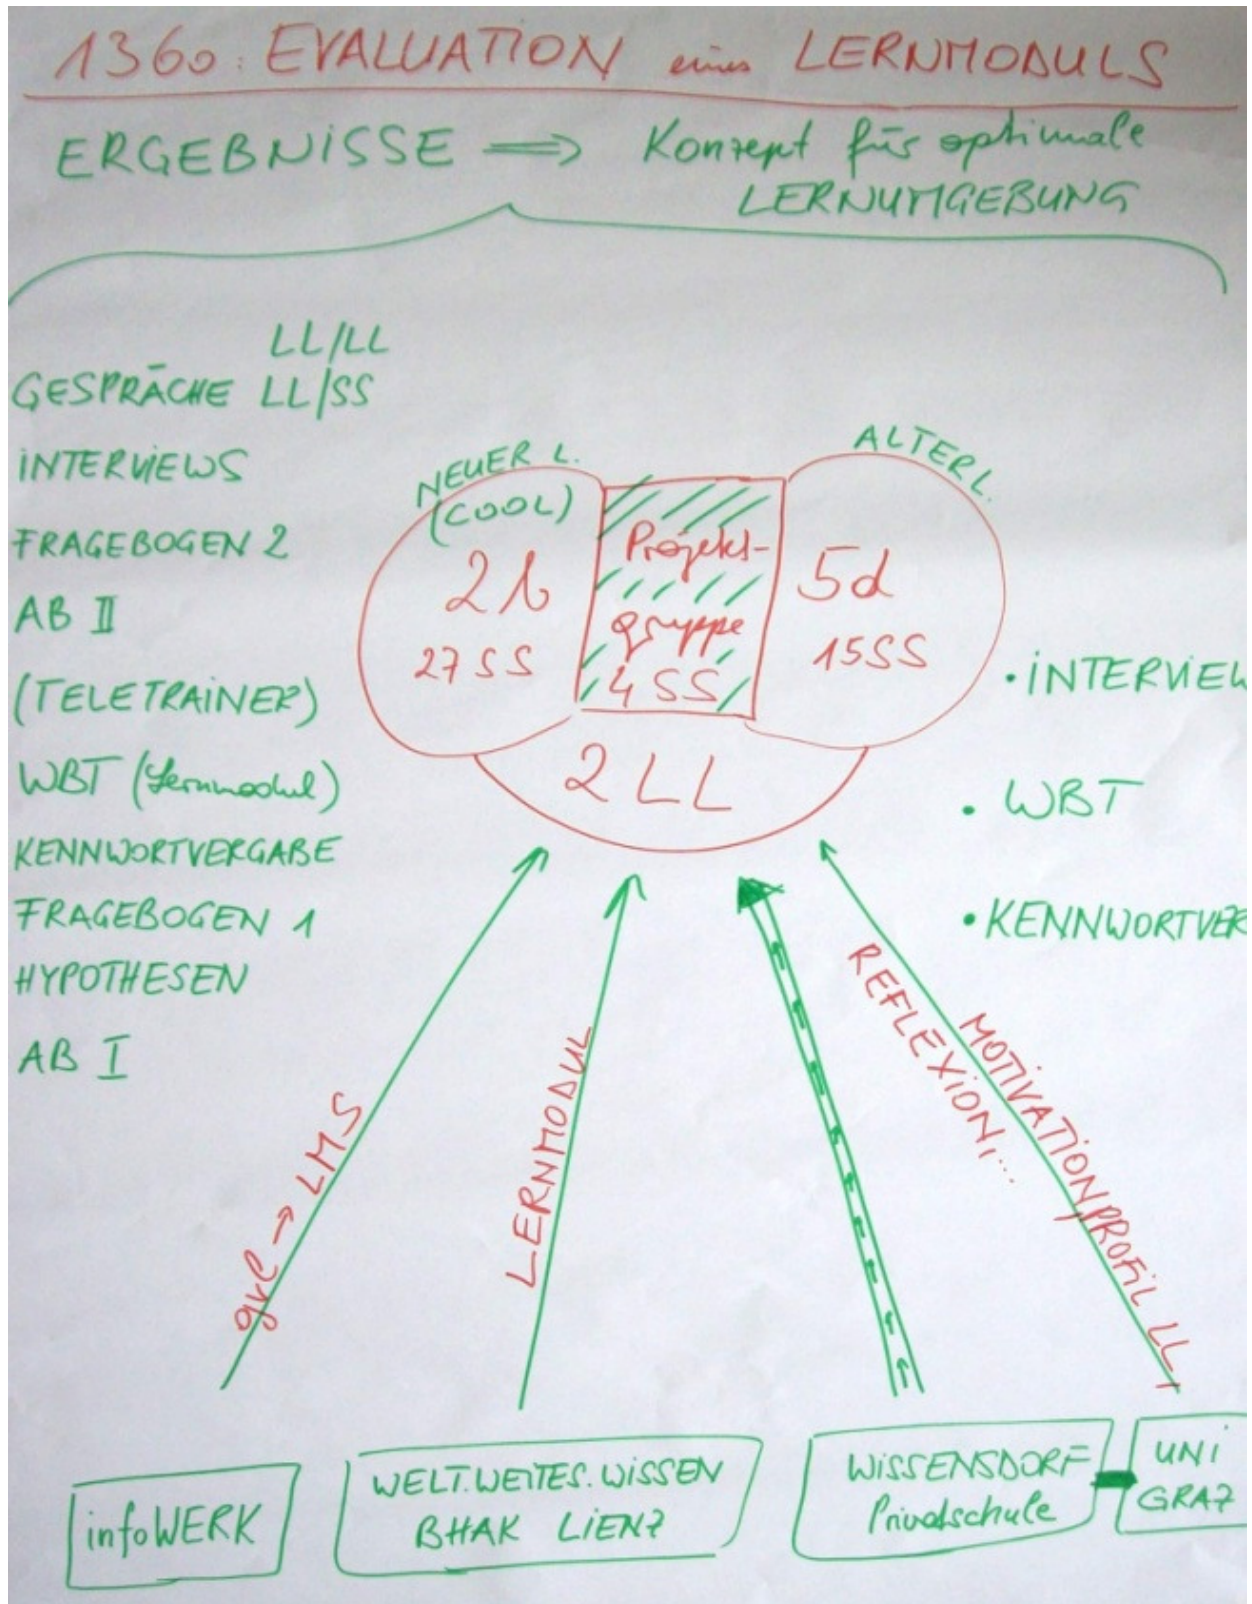 1360: EVALUATION eines LERNMODULS
ERGEBNISSE ⟹ Konzept für optimale
LERNUMGEBUNG
LL/LL
GESPRÄCHE LL/SS
INTERVIEWS
FRAGEBOGEN 2
AB II
(TELETRAINER)
WBT (Lernmodul)
KENNWORTVERGABE
FRAGEBOGEN 1
HYPOTHESEN
AB I
NEUER L.
(COOL)
2b
27 SS
Projekt-
gruppe
4 SS
ALTER L.
5d
15 SS
2 LL
• INTERVIEW
• WBT
• KENNWORTVER
grl → LMS
LERNMODUL
REFLEXION,...
MOTIVATIONPROFIL LL,
infoWERK
WELT.WEITES.WISSEN
BHAK LIENZ
WISSENSDORF
Privatschule
UNI
GRAZ